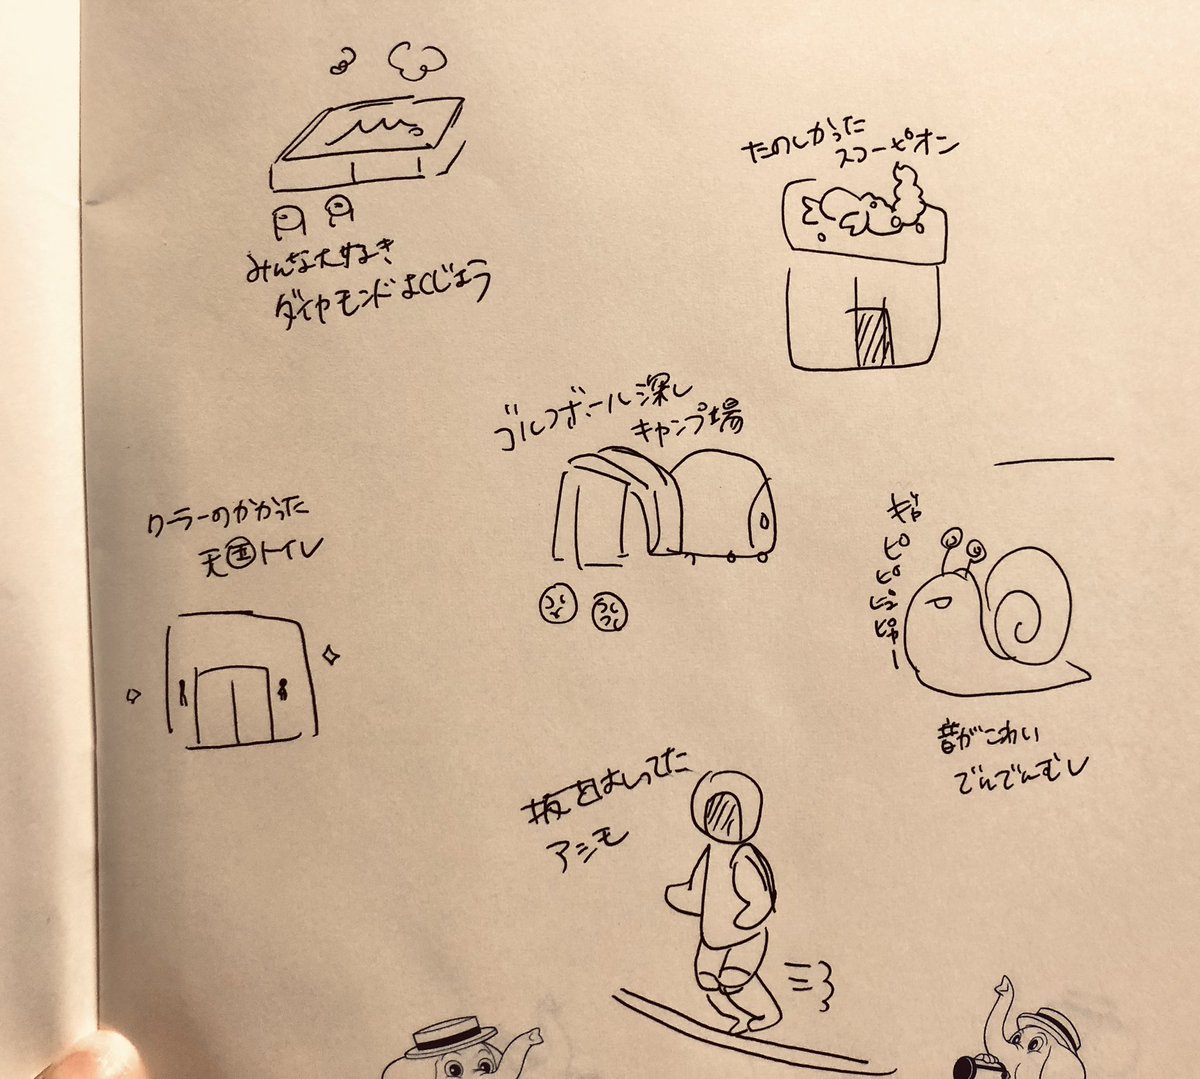 みんな大好き
ダイヤモンドよくじょう
たのしかった
スコーピオン
ゴルフボール深し
キャンプ場
クーラーのかかった
天国トイレ
ギャ
ピ
ピ
ピュ
ピャー
音がこわい
でんでんむし
坂をはしってた
アシモ